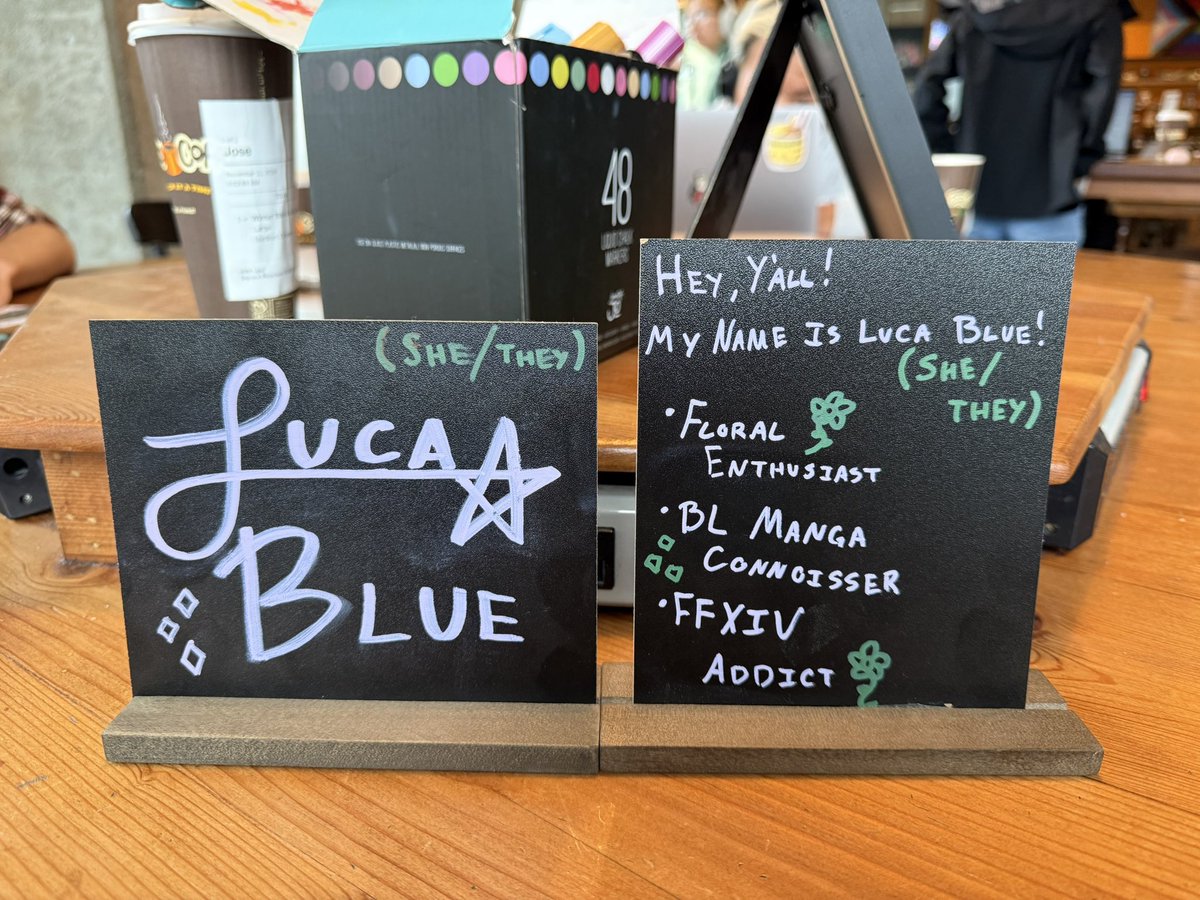 (SHE/THEY)
LUCA
BLUE
HEY, Y'ALL!
MY NAME IS LUCA BLUE!
(SHE/
THEY)
• FLORAL
ENTHUSIAST
• BL MANGA
CONNOISSER
• FFXIV
ADDICT
48
LIQUID CHALK
MARKERS
Jose